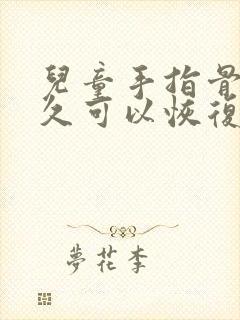 兒童手指骨
久可以恢復
夢花李